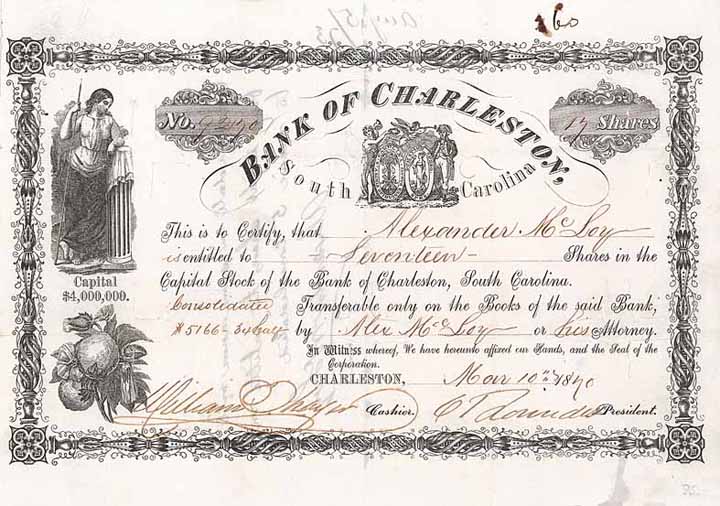 160
No.
BANK OF CHARLESTON,
South Carolina
17 Shares
This is to Certify, that Alexander McLoy
is entitled to Seventeen Shares in the
Capital Stock of the Bank of Charleston, South Carolina.
Capital
$4,000,000.
Consolidated Transferable only on the Books of the said Bank,
$5166 by Alex McLoy or his Attorney.
In Witness whereof, We have hereunto affixed our Hands, and the Seal of the
Corporation.
CHARLESTON, Mar 10th 1870
William Cashier. President.